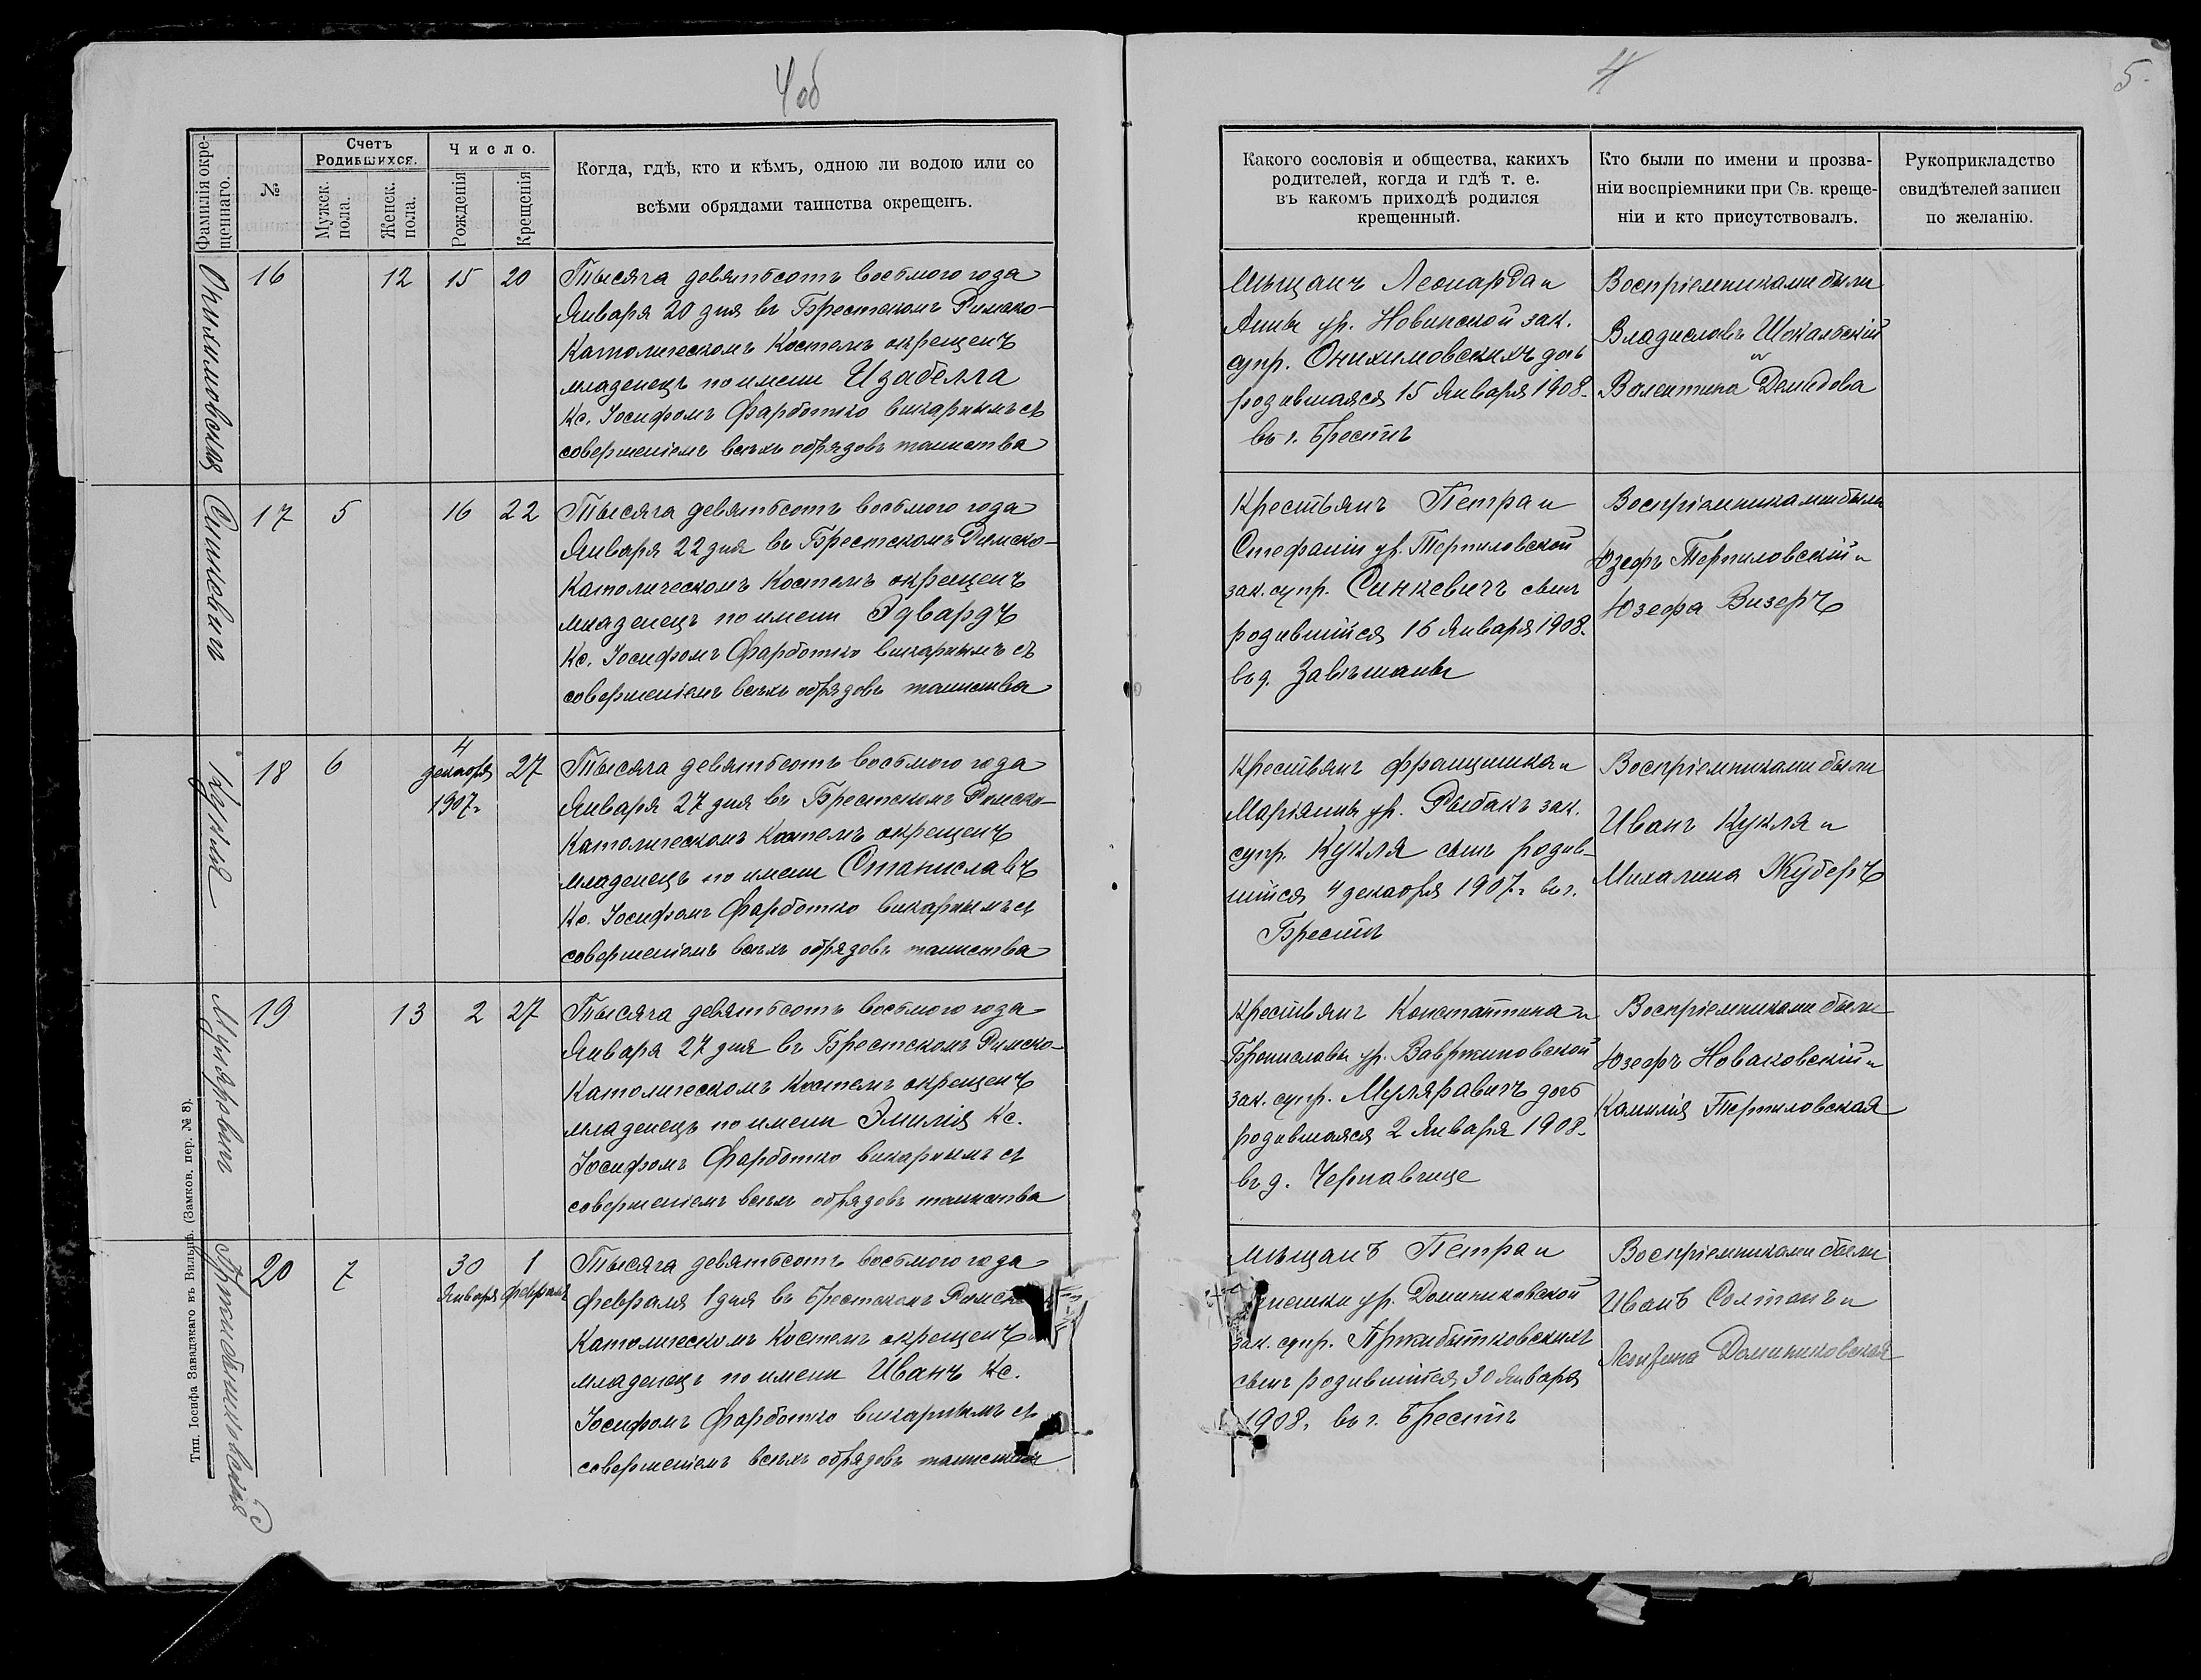 4 об
4
5.
Фамилія окре-
щеннаго.
№
Счетъ
Родившихся.
Мужск.
пола.
Женск.
пола.
Число.
Рожденія
Крещенія
Когда, гдѣ, кто и кѣмъ, одною ли водою или со
всѣми обрядами таинства окрещенъ.
Какого сословія и общества, какихъ
родителей, когда и гдѣ т. е.
въ какомъ приходѣ родился
крещенный.
Кто были по имени и прозва-
ніи воспріемники при Св. креще-
ніи и кто присутствовалъ.
Рукоприкладство
свидѣтелей записи
по желанію.
Онихимовская
16
12
15
20
Тысяча девятьсотъ восьмого года
Января 20 дня въ Брестскомъ Римско-
Католическомъ Костелѣ окрещенъ
младенецъ по имени Изабелла
Кс. Іосифомъ Фарботко викарнымъ съ
совершеніемъ всѣхъ обрядовъ таинства
Мѣщанъ Леонарда и
Анны ур. Новинской зак.
супр. Онихимовскихъ дочь
родившаяся 15 Января 1908.
въ г. Брестѣ
Воспріемниками были
Владиславъ Шокальскій
и
Валентина Демидова
Синкевичъ
17
5
16
22
Тысяча девятьсотъ восьмого года
Января 22 дня въ Брестскомъ Римско-
Католическомъ Костелѣ окрещенъ
младенецъ по имени Эдвардъ
Кс. Іосифомъ Фарботко викарнымъ съ
совершеніемъ всѣхъ обрядовъ таинства
Крестьянъ Петра и
Стефаніи ур. Терпиловской
зак. супр. Синкевичъ сынъ
родившійся 16 Января 1908.
въ д. Завершаны
Воспріемниками были
Юзефъ Терпиловскій и
Юзефа Визеръ
Кукля
18
6
4
декабря
1907 г.
27
Тысяча девятьсотъ восьмого года
Января 27 дня въ Брестскомъ Римско-
Католическомъ Костелѣ окрещенъ
младенецъ по имени Станиславъ
Кс. Іосифомъ Фарботко викарнымъ съ
совершеніемъ всѣхъ обрядовъ таинства
Крестьянъ Францишка и
Маріянны ур. Рыбакъ зак.
супр. Кукля сынъ родив-
шійся 4 декабря 1907 г. въ г.
Брестѣ
Воспріемниками были
Иванъ Кукля и
Михалина Жуберъ
Муляровичъ
19
13
2
27
Тысяча девятьсотъ восьмого года
Января 27 дня въ Брестскомъ Римско-
Католическомъ Костелѣ окрещенъ
младенецъ по имени Эмилія Кс.
Іосифомъ Фарботко викарнымъ съ
совершеніемъ всѣхъ обрядовъ таинства
Крестьянъ Константина и
Брониславы ур. Вавржиновской
зак. супр. Муляравичъ дочь
родившаяся 2 Января 1908.
въ д. Чернавчице
Воспріемниками были
Юзефъ Новаковскій и
Камилія Терпиловская
Пржибытковскій
20
7
30
Января
1
февраля
Тысяча девятьсотъ восьмого года
февраля 1 дня въ Брестскомъ Римско
Католическомъ Костелѣ окрещенъ
младенецъ по имени Иванъ Кс.
Іосифомъ Фарботко викарнымъ съ
совершеніемъ всѣхъ обрядовъ таинства
Мѣщанъ Петра и
ур. Доминиковской
зак. супр. Пржибытковскихъ
сынъ родившійся 30 Января
1908. въ г. Брестѣ
Воспріемниками были
Иванъ Солтанъ и
Доминиковская
Тип. Іосифа Завадзкаго въ Вильнѣ. (Замков. пер. № 8).